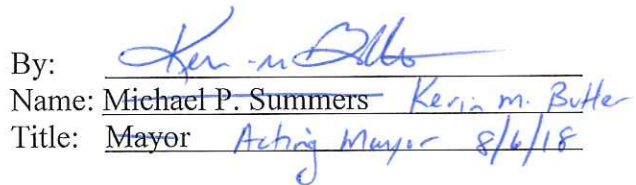 By: Kevin M Butler
Name: Michael P. Summers Kevin M. Butler
Title: Mayor Acting Mayor 8/6/18